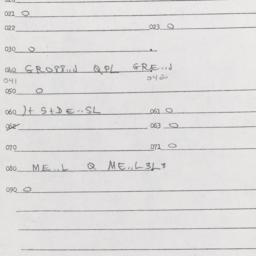 021 O
022 023 O
030 O .
040 GROPP..J Q PL GRE..J
041 042
050 O
060 )+ S+DE..SL 061 O
062 063 O
070 071 O
080 ME..L Q ME..L3L3
090 O